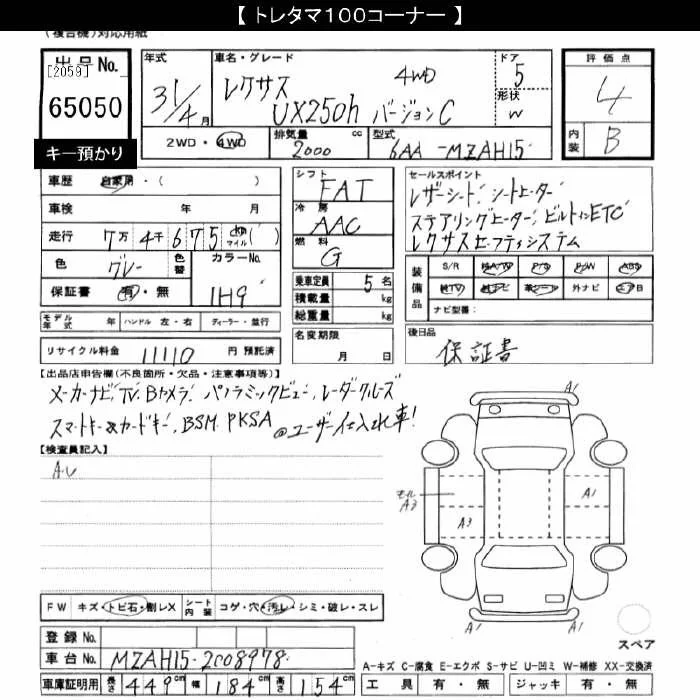 【 トレタマ100コーナー 】
(複合機)対応用紙
出品No.
[2059]
65050
キー預かり
年式
31/4 月
車名・グレード
レクサス 4WD
UX250h バージョンC
ドア
5
形状
W
評価点
4
内装
B
2WD・4WD
排気量 cc
2000
型式
6AA -MZAH15
車歴 自家用・( )
車検 年 月
走行 7万 4千 6 7 5 km マイル ( )
色 グレー 色替 カラーNo. 1H9
保証書 有・無
モデル年式 年 ハンドル 左・右 ディーラー・並行
リサイクル料金 11110 円 預託済
シフト
FAT
冷房
AAC
燃料
G
乗車定員 5 名
積載量 kg
総重量 kg
名変期限
月 日
セールスポイント
レザーシート、シートヒーター
ステアリングヒーター、ビルトインETC
レクサスセーフティシステム
装備品
S/R 純A/W P/S P/W ABS
純TV 純ナビ 革シート 外ナビ エアB
ナビ型番:
後日品
保証書
【出品店申告欄(不良箇所・欠品・注意事項等)】
メーカーナビ、TV、Bカメラ、パノラミックビュー、レーダークルーズ
スマートキー&カードキー、BSM、PKSA @ユーザー仕入れ車!
【検査員記入】
AU
A1
モール A3
A1
A3
A1 A1
スペア
FW キズ・トビ石・割レX シート内装 コゲ・穴・汚レ・シミ・破レ・スレ
登録 No.
車台 No. MZAH15-2008978
車庫証明用 長さ 449 cm 幅 184 cm 高さ 154 cm
A-キズ C-腐食 E-エクボ S-サビ U-凹ミ W-補修 XX-交換済
工具 有・無 ジャッキ 有・無